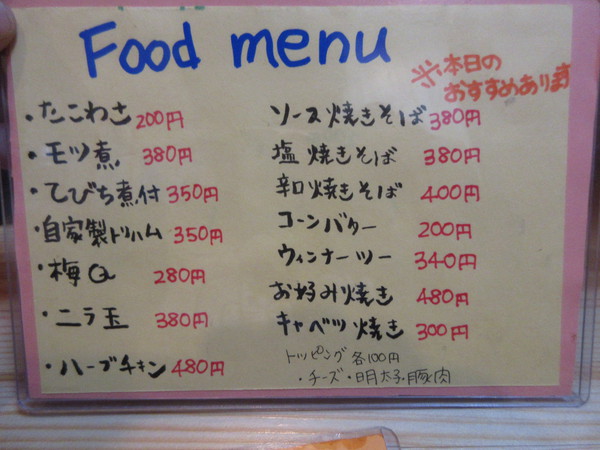 Food menu
※本日の
おすすめあります
・たこわさ 200円
・モツ煮 380円
・てびち煮付 350円
・自家製トリハム 350円
・梅Q 280円
・ニラ玉 380円
・ハーブチキン 480円
ソース焼きそば 380円
塩焼きそば 380円
辛口焼きそば 400円
コーンバター 200円
ウィンナーソー 340円
お好み焼き 480円
キャベツ焼き 300円
トッピング 各100円
・チーズ・明太子・豚肉